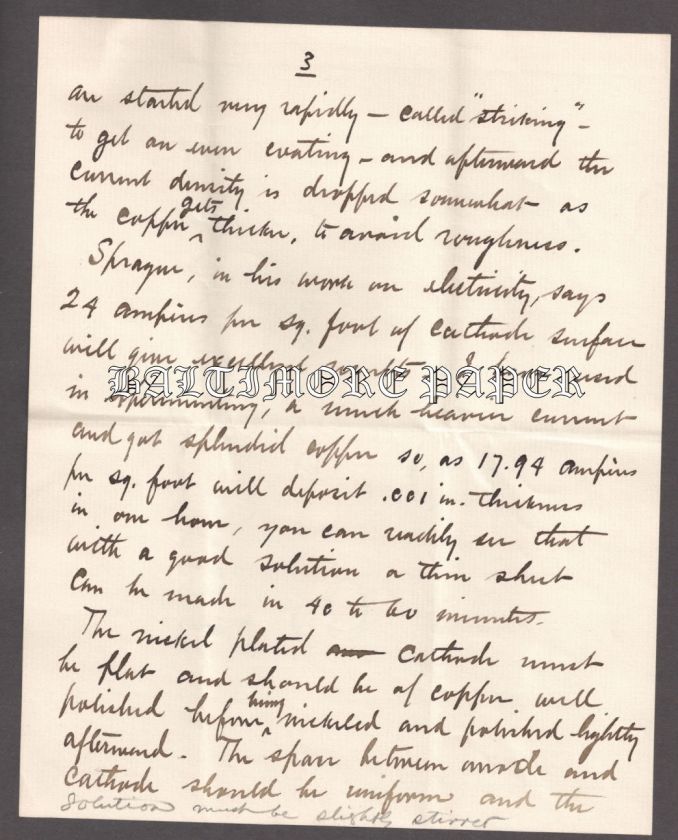 3
are started very rapidly — called "striking" —
to get an even coating — and afterward the
current density is dropped somewhat as
the copper gets thicker, to avoid roughness.
Sprague, in his work on electricity, says
24 amperes per sq. foot of cathode surface
will give excellent results. I have used
BALTIMORE PAPER
in experimenting, a much heavier current
and got splendid copper so, as 17.94 amperes
per sq. foot will deposit .001 in. thickness
in one hour, you can readily see that
with a good solution a thin sheet
can be made in 40 to 60 minutes.
The nickel plated cathode must
be flat and should be of copper well
polished before being nickeled and polished lightly
afterward. The space between anode and
cathode should be uniform and the
solution must be slightly stirred